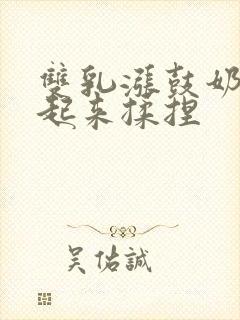 雙乳漲鼓奶
起来揉捏
吴佑誠